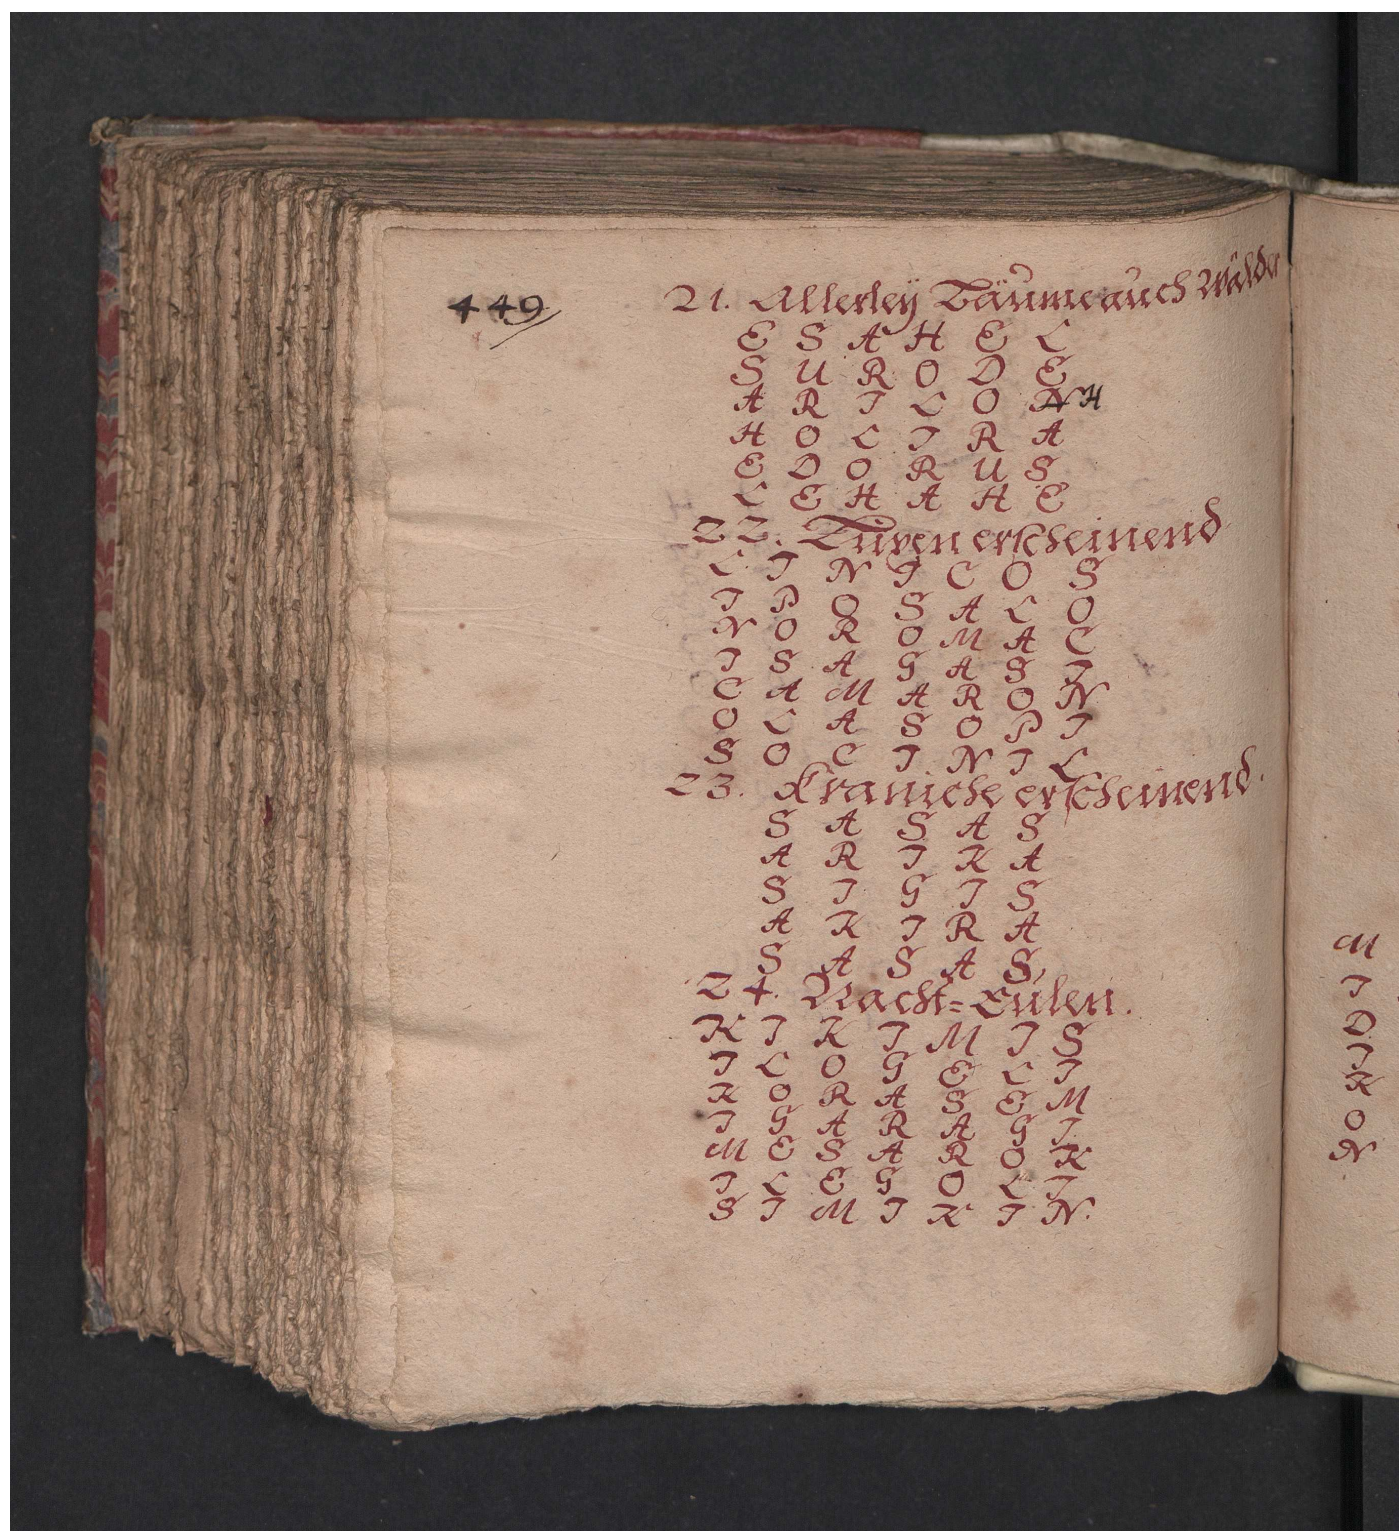 449
21. Allerleÿ Bäume auch Wälder
E S A H E L
S U R O D E
A R I L O N H
H O L I R A
E D O R U S
L E H A H E
22. erscheinend
L I N I C O S
I P O S A L O
N O R O M A C
I S A G A S I
C A M A R O N
O L A S O P I
S O C I N I L
23. Kraniche erscheinend.
S A S A S
A R I K A
S I G I S
A K I R A
S A S A S
24. Nacht=Eulen.
K I K I M I S
I L O G E L I
K O R A S E M
I G A R A G I
M E S A R O K
I L E G O L I
S I M I K I N.
M
I
D
I
K
O
N